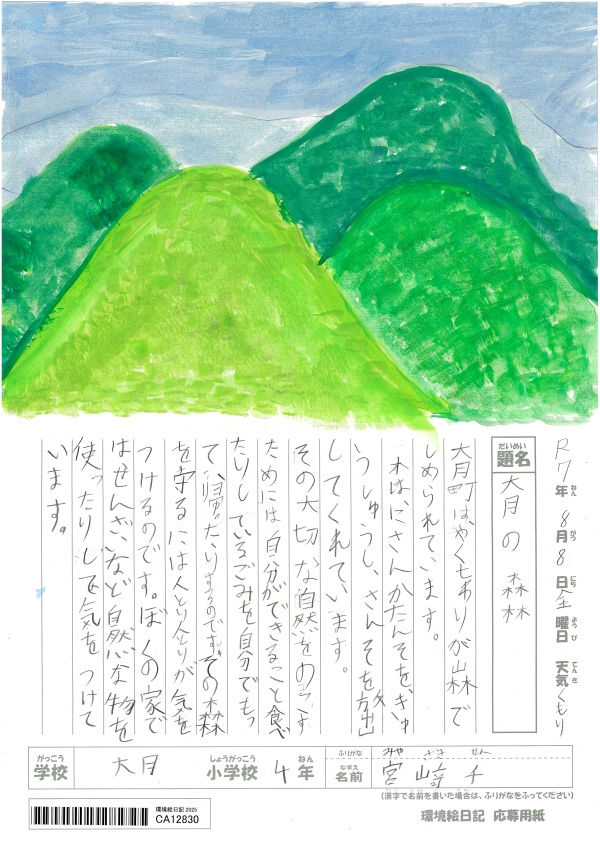 R7年 8月8日 金曜日 天気くもり
ねん がつ にち ようび てんき
だいめい
題名 大月の森林
大月町は、やく七わりが森林で
しめられています。
木は、にさんかたんそを、きゅ
うしゅうし、さんそを放出
してくれています。
その大切な自然をのこす
ためには自分ができること食べ
たりしているごみを自分でもっ
て、帰ったりするのです。その森
を守るには人とり人とりが気を
つけるのです。ぼくの家で
はせんざいなど自然な物を
使ったりして気をつけて
います。
がっこう しょうがっこう ねん ふりがな
学校 大月 小学校 4年
なまえ
名前 宮﨑 千
(漢字で名前を書いた場合は、ふりがなをふってください)
環境絵日記 応募用紙
環境絵日記 2025
CA12830